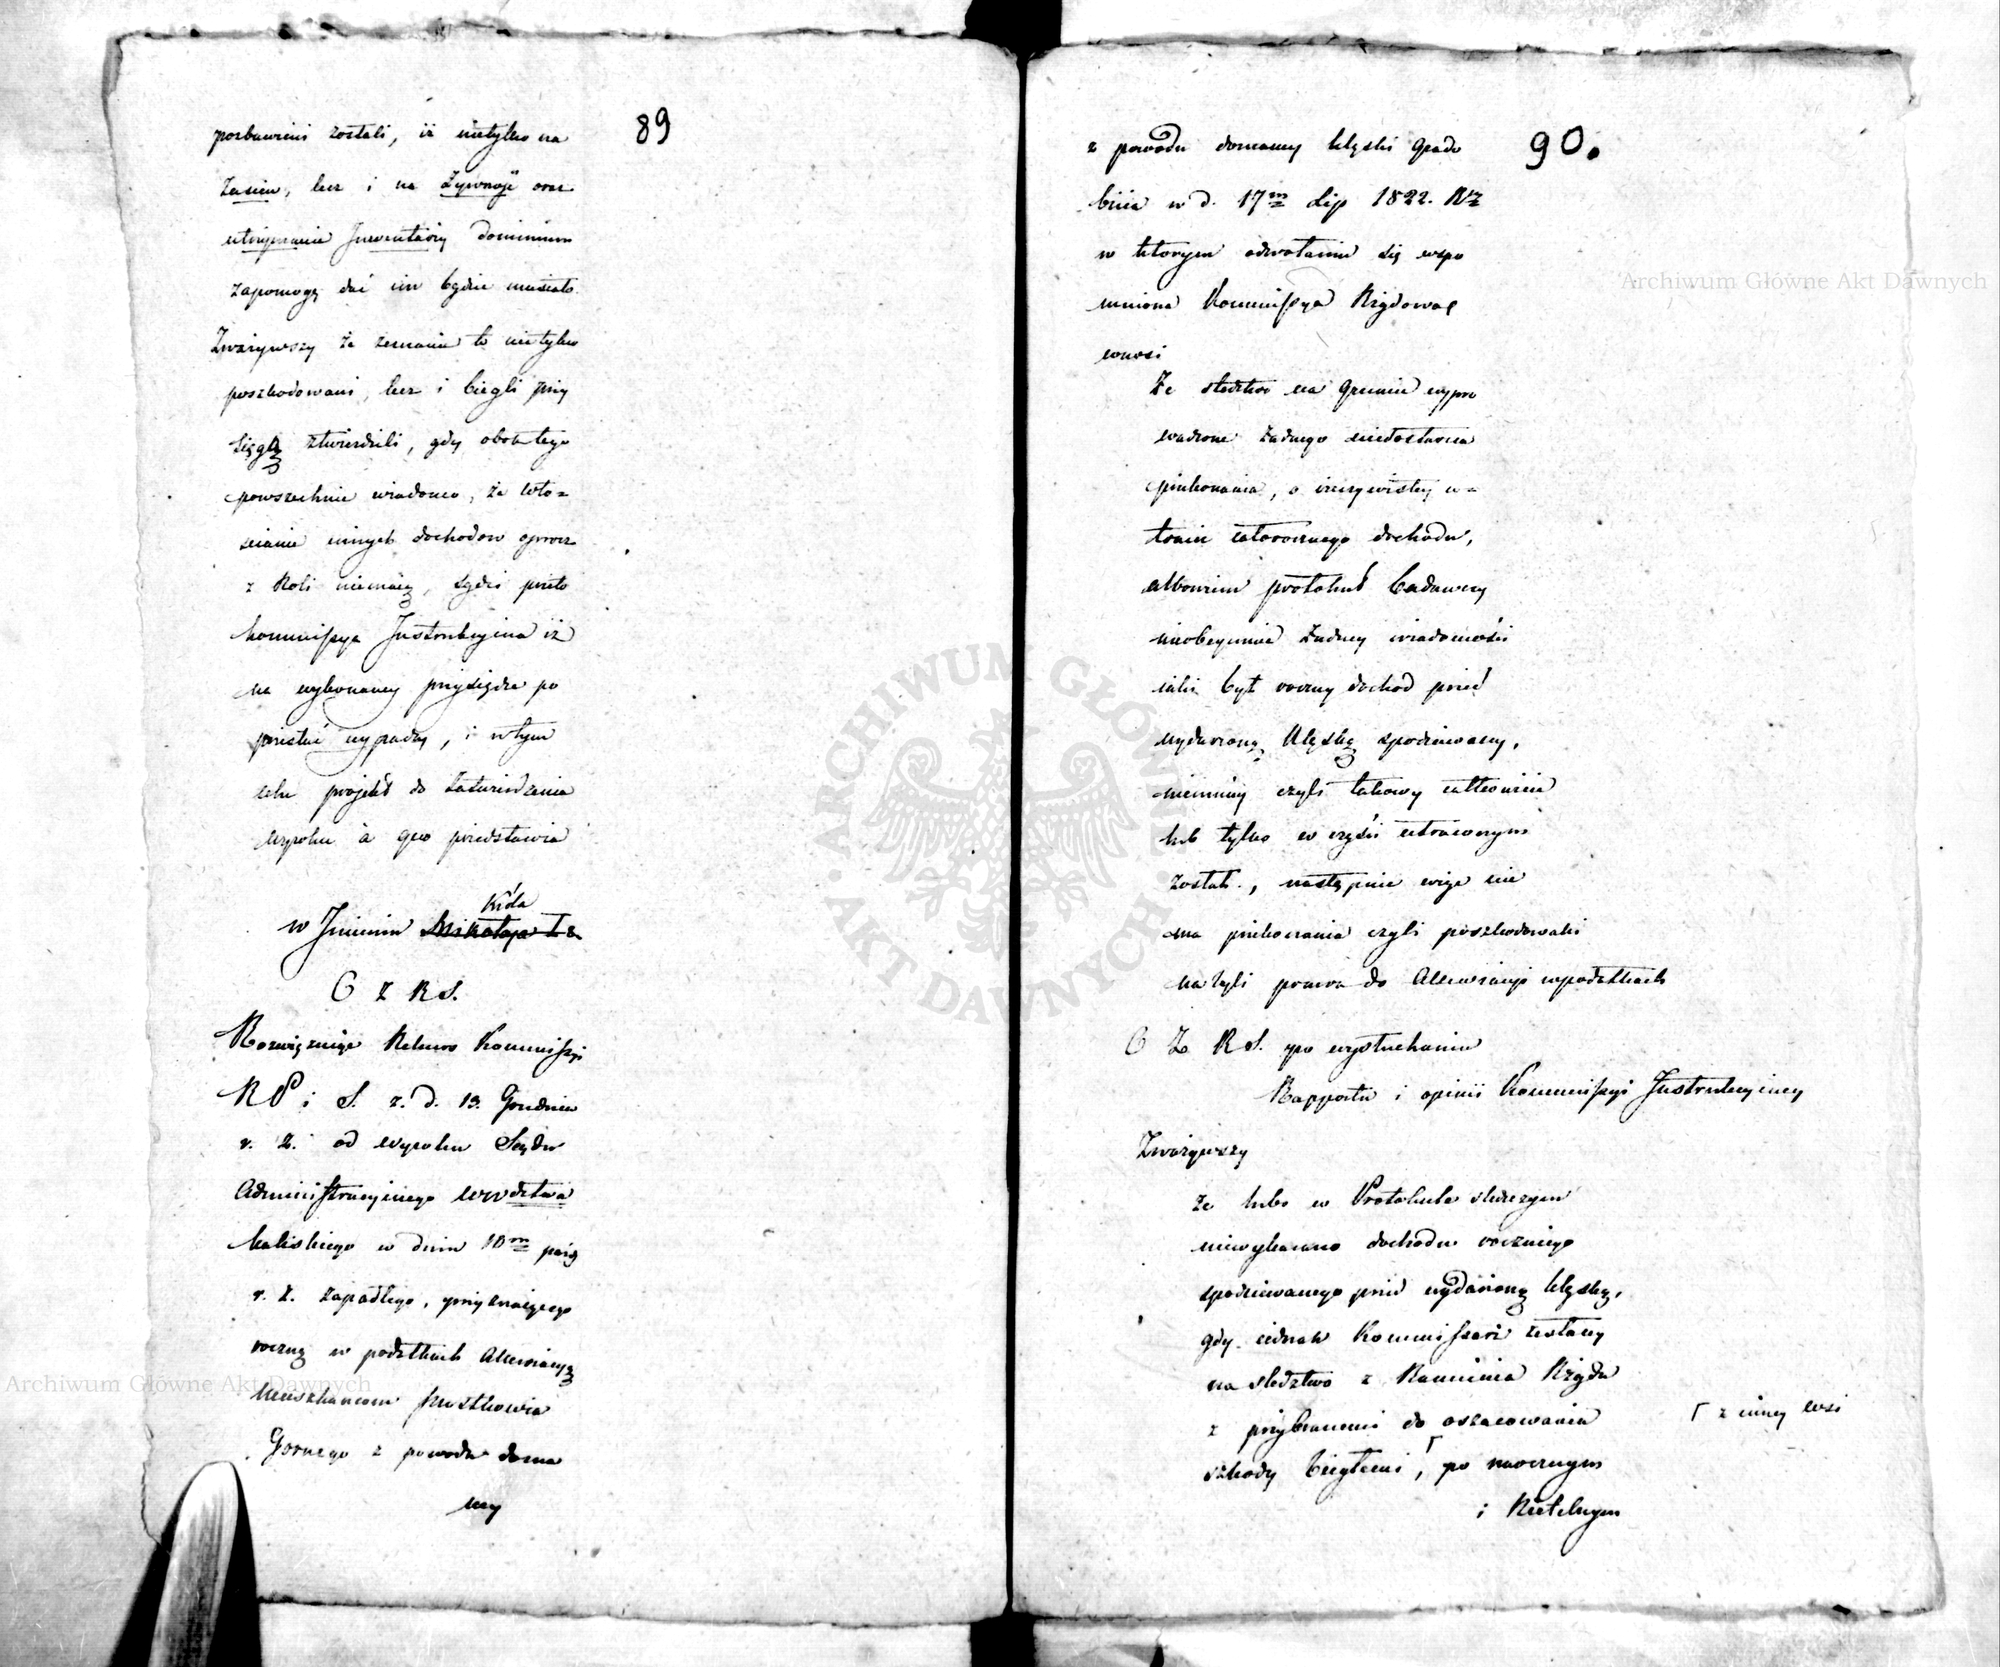 89
pozbawieni zostali, iż nietylko na
Zasiew, lecz i na Żywność oraz
utrzymanie Inwentarzy Dominium
zapomogę dać im będzie musiało.
Zważywszy że zeznanie to nietylko
poszkodowani, lecz i biegli przy
sięgą stwierdzili, gdy obok tego
powszechnie wiadomo, że wło=
scianie innych dochodow oprocz
z Roli niemaią, sądzi przeto
kommissya Instrukcyina iż
na wykonaney przysiędze po
przestać wypada, i wtym
celu projekt do Zatwierdzenia
wyroku à quo przedstawia
Króla
w Imieniu Mikołaja I.
O Z R S.
Rozwiązuiąc Rekurs Kommissyi
R P i S. z. d. 13. Grudnia
r. z. od wyroku Sądu
Administracyinego wwdztwa
kaliskiego w dniu 10m paźd
r. z. zapadłego, przyznaiącego
roczną w podatkach Allewiacyą
Mieszkancom Pustkowia
Gornego z powodu dozna
ney
90.
z powodu doznaney klęski Grado
bicia w d. 17m Lip 1822. Rz
w ktorym odwołaniu się wspo
mniona Kommissya Rządowa
wnosi
Że sledztwo na Gruncie wypro
wadzone żadnego niedostarcza
przekonania, o rzeczywistey u=
tracie całorocznego dochodu,
albowiem protokuł badawczy
nieobeymuie żadney wiadomości
iaki był roczny dochod przed
wydarzoną Klęską spodziewany,
niemniey czyli takowy całkowicie
lub tylko w części utraconym
został, następnie więc nie
ma przekonania czyli poszkodowani
nabyli prawa do Allewiacyi wpodatkach
O Z R S. po wysłuchaniu
Rapportu i opinii Kommissyi Instrukcyiney
Zważywszy
że lubo w Protokule sledczym
niewykazano dochodu rocznego
spodziewanego przed wydarzoną klęską,
gdy iednak Kommissarz zesłany
na sledztwo z Ramienia Rządu
z przybranemi do oszacowania
szkody biegłemi, po naocznym
z inney wsi
i Rzetelnym
Archiwum Główne Akt Dawnych
Archiwum Główne Akt Dawnych
ARCHIWUM GŁÓWNE AKT DAWNYCH